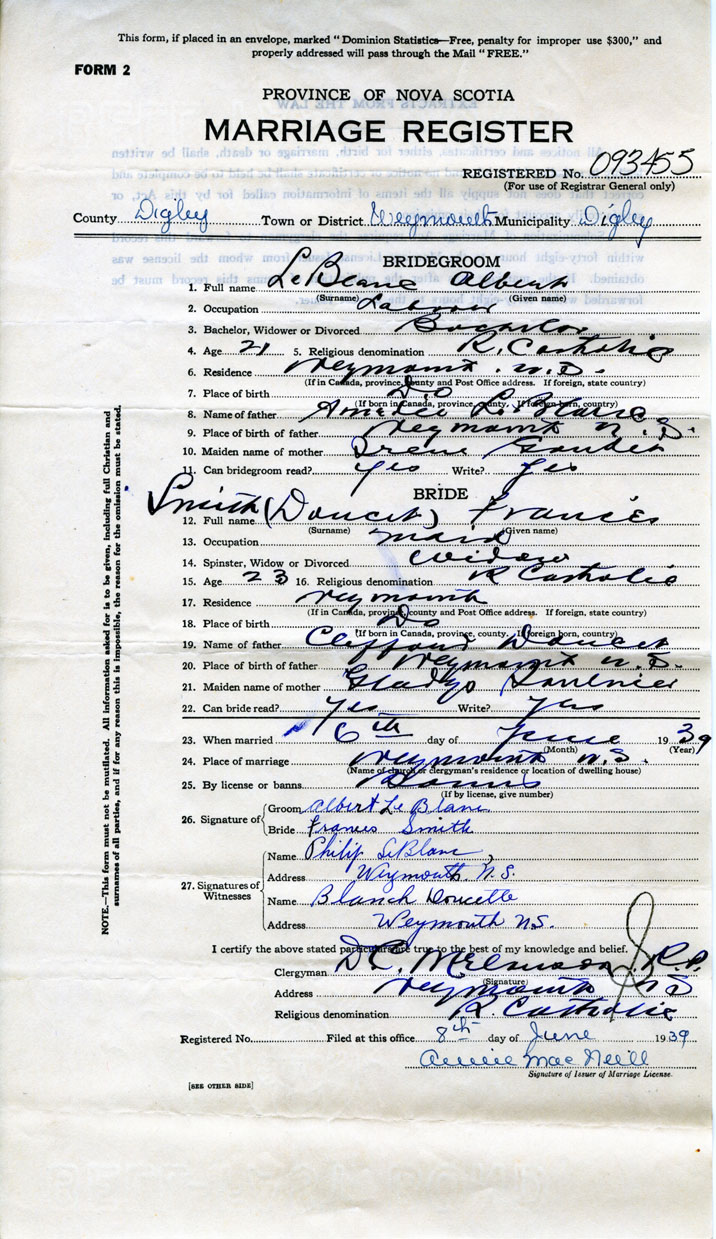 This form, if placed in an envelope, marked "Dominion Statistics—Free, penalty for improper use $300," and
properly addressed will pass through the Mail "FREE."
FORM 2
PROVINCE OF NOVA SCOTIA
MARRIAGE REGISTER
REGISTERED No. 093455
(For use of Registrar General only)
County Digby Town or District Weymouth Municipality Digby
BRIDEGROOM
1. Full name LeBlanc Albert
(Surname) (Given name)
2. Occupation Labour
3. Bachelor, Widower or Divorced Bachelor
4. Age 21 5. Religious denomination R. Catholic
6. Residence Weymouth N.S.
(If in Canada, province, county and Post Office address. If foreign, state country)
7. Place of birth Do
(If born in Canada, province, county. If foreign born, country)
8. Name of father Amedee LeBlanc
9. Place of birth of father Weymouth N.S.
10. Maiden name of mother Irene Gaudet
11. Can bridegroom read? Yes Write? Yes
BRIDE
12. Full name Smith (Doucet) Frances
(Surname) (Given name)
13. Occupation Maid
14. Spinster, Widow or Divorced Widow
15. Age 23 16. Religious denomination R Catholic
17. Residence Weymouth
(If in Canada, province, county and Post Office address. If foreign, state country)
18. Place of birth Do
(If born in Canada, province, county. If foreign born, country)
19. Name of father Clifford Doucet
20. Place of birth of father Weymouth N.S.
21. Maiden name of mother Gladys Saulnier
22. Can bride read? Yes Write? Yes
23. When married 6th day of June 1939
(Month) (Year)
24. Place of marriage Weymouth N.S.
(Name of church or clergyman's residence or location of dwelling house)
25. By license or banns Banns
(If by license, give number)
26. Signature of
Groom Albert LeBlanc
Bride Frances Smith
27. Signatures of Witnesses
Name Philip LeBlanc
Address Weymouth N.S.
Name Blanch Doucette
Address Weymouth NS.
I certify the above stated particulars are true to the best of my knowledge and belief.
Clergyman P.P.
(Signature)
Address Weymouth N S
Religious denomination R. Catholic
Registered No. Filed at this office 8th day of June 1939
Annie MacNeill
Signature of Issuer of Marriage License.
[SEE OTHER SIDE]
NOTE.—This form must not be mutilated. All information asked for is to be given, including full Christian and
surnames of all parties, and if for any reason this is impossible, the reason for the omission must be stated.